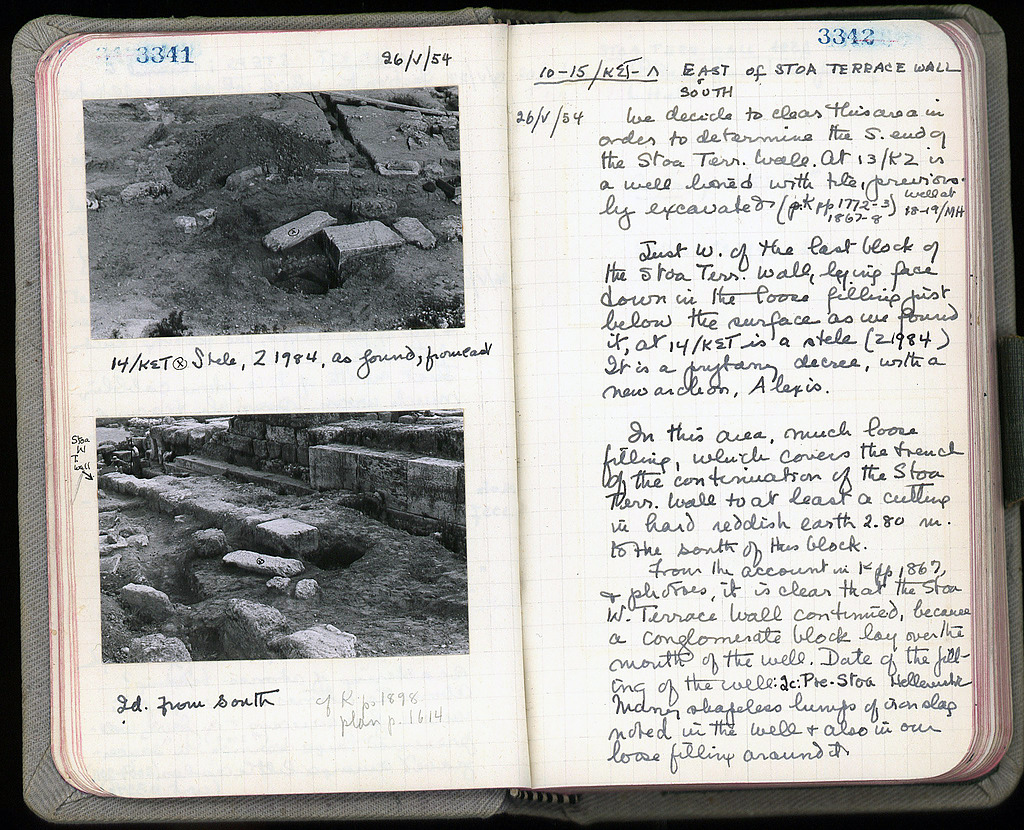 3341
26/V/54
14/ΚΣΤ Ⓧ Stele, Z 1984, as found, from east
Stoa
W
T
wall
Id. from South
cf K p. 1898
plan p. 1614
3342
10-15/ΚΣΤ-Λ EAST of STOA TERRACE WALL
SOUTH
26/V/54
We decide to clear this area in
order to determine the S. end of
the Stoa Terr. Wall. At 13/ΚΖ is
a well lined with tile, previous-
ly excavated (p. K pp 1772-3) well at
1867-8 18-19/ΜΗ
Just W. of the last block of
the Stoa Terr. Wall, lying face
down in the loose filling just
below the surface as we found
it, at 14/ΚΣΤ is a stele (Z1984)
It is a prytany decree, with a
new archon, Alexis.
In this area, much loose
filling, which covers the trench
of the continuation of the Stoa
Terr. Wall to at least a cutting
in hard reddish earth 2.80 m.
to the south of this block.
From the account in K pp 1867,
& photoes, it is clear that the Stoa
W. Terrace Wall continued, because
a conglomerate block lay over the
mouth of the well. Date of the fill-
ing of the well: 2c: Pre-Stoa Hellenistic
Many shapeless lumps of iron slag
noted in the well & also in our
loose filling around it.